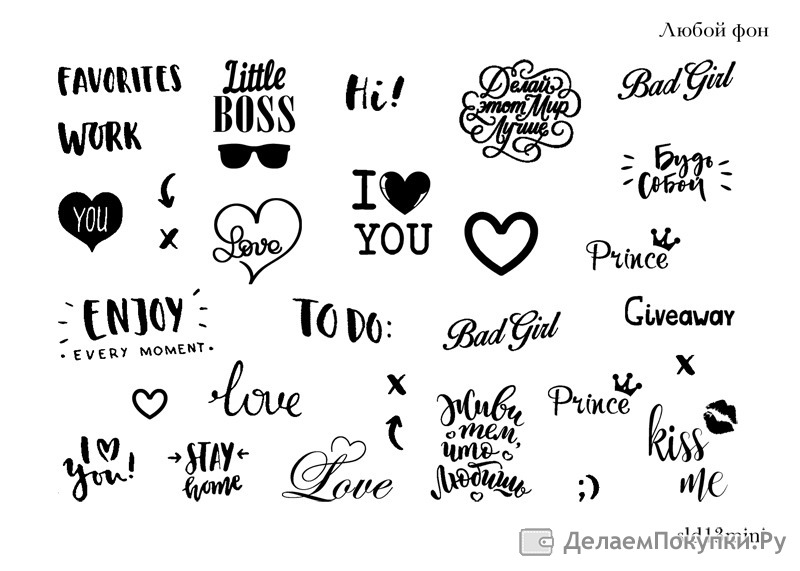 Любой фон
FAVORITES
Little
BOSS
Hi!
Делай
этот Мир
Лучше
Bad Girl
WORK
Будь
Собой
YOU
x
Love
I
YOU
Prince
ENJOY
EVERY MOMENT
TO DO:
Bad Girl
Giveaway
x
love
x
Живи
тем,
что
Любишь
Prince
kiss
me
I
you!
STAY
home
Love
;)
sld13mini
ДелаемПокупки.Ру